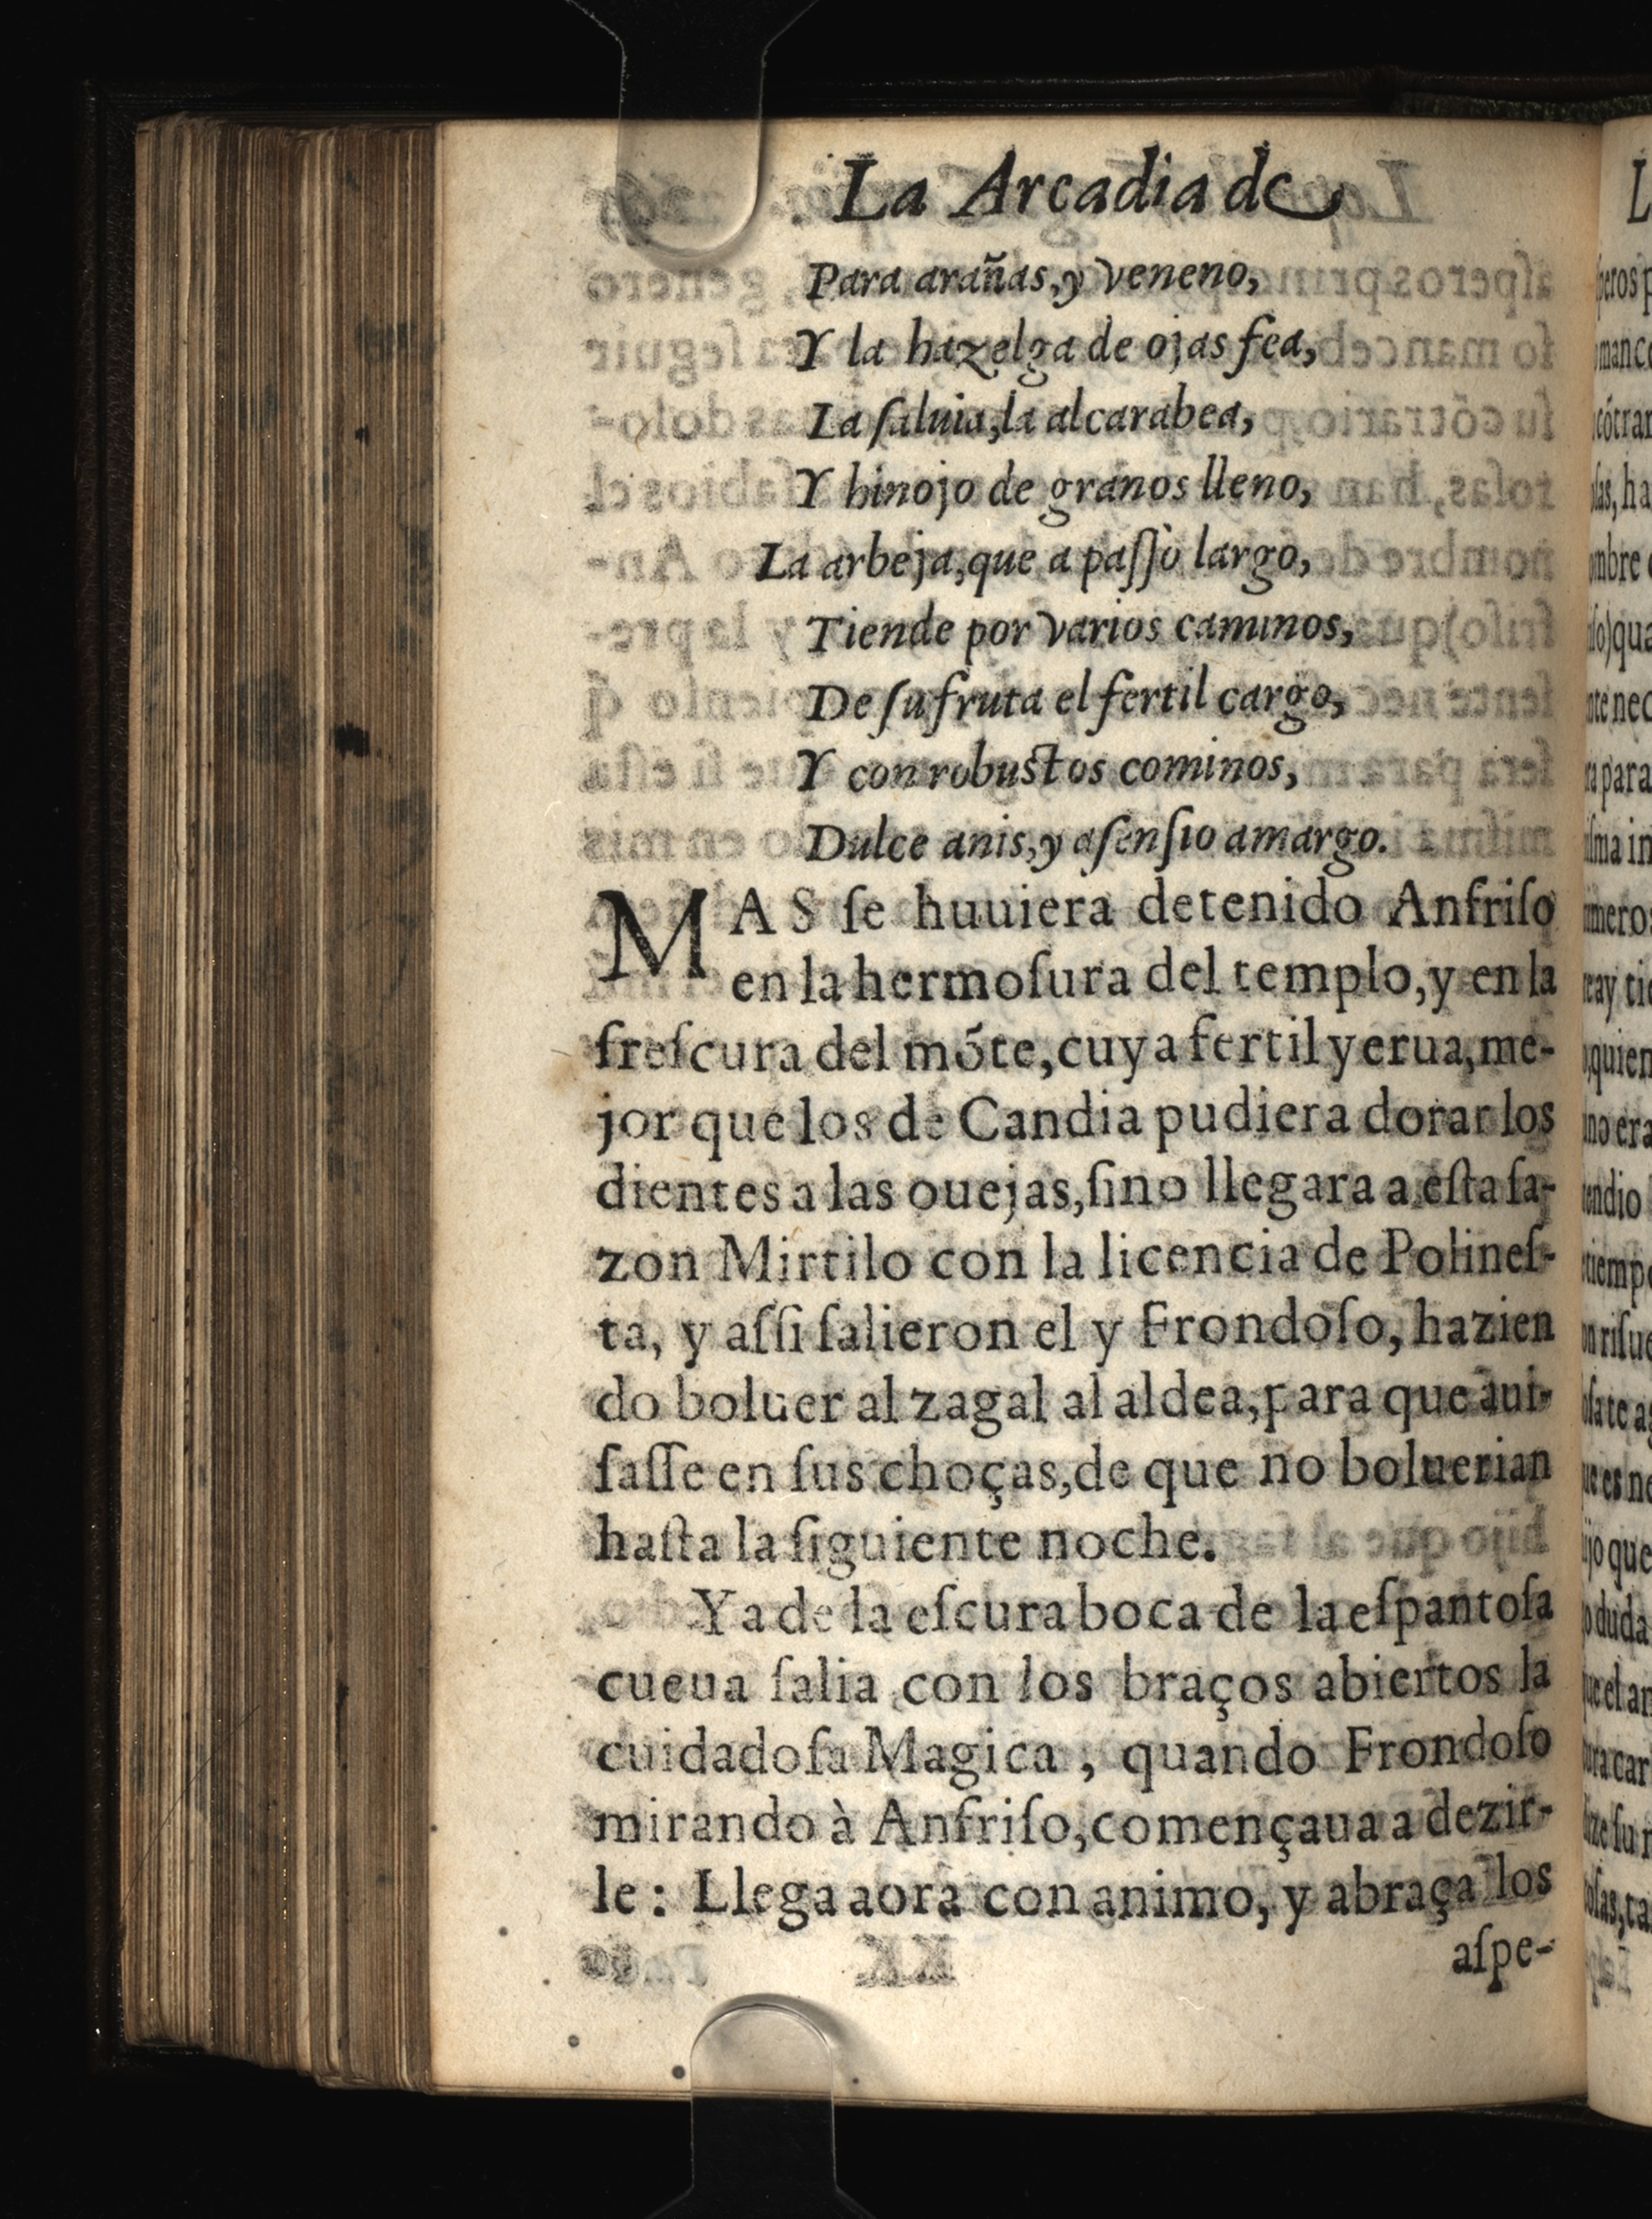 La Arcadia de
Para arañas, y veneno,
Y la hazelga de ojas fea,
La ſaluia, la alcarabea,
Y hinojo de granos lleno,
La arbeja, que a paſſò largo,
Tiende por varios caminos,
De ſu fruta el fertil cargo,
Y con robuſtos cominos,
Dulce anis, y aſenſio amargo.
MAS ſe huuiera detenido Anfriſo
en la hermoſura del templo, y en la
freſcura del mõte, cuya fertil yerua, me-
jor que los de Candia pudiera dorar los
dientes a las ouejas, ſino llegara a eſta ſa-
zon Mirtilo con la licencia de Polineſ-
ta, y aſſi ſalieron el y Frondoſo, hazien
do boluer al zagal al aldea, para que aui-
ſaſſe en ſus choças, de que no boluerian
haſta la ſiguiente noche.
Ya de la eſcura boca de la eſpantoſa
cueua ſalia con los braços abiertos la
cuidadoſa Magica, quando Frondoſo
mirando à Anfriſo, començaua a dezir-
le: Llega aora con animo, y abraça los
aſpe-